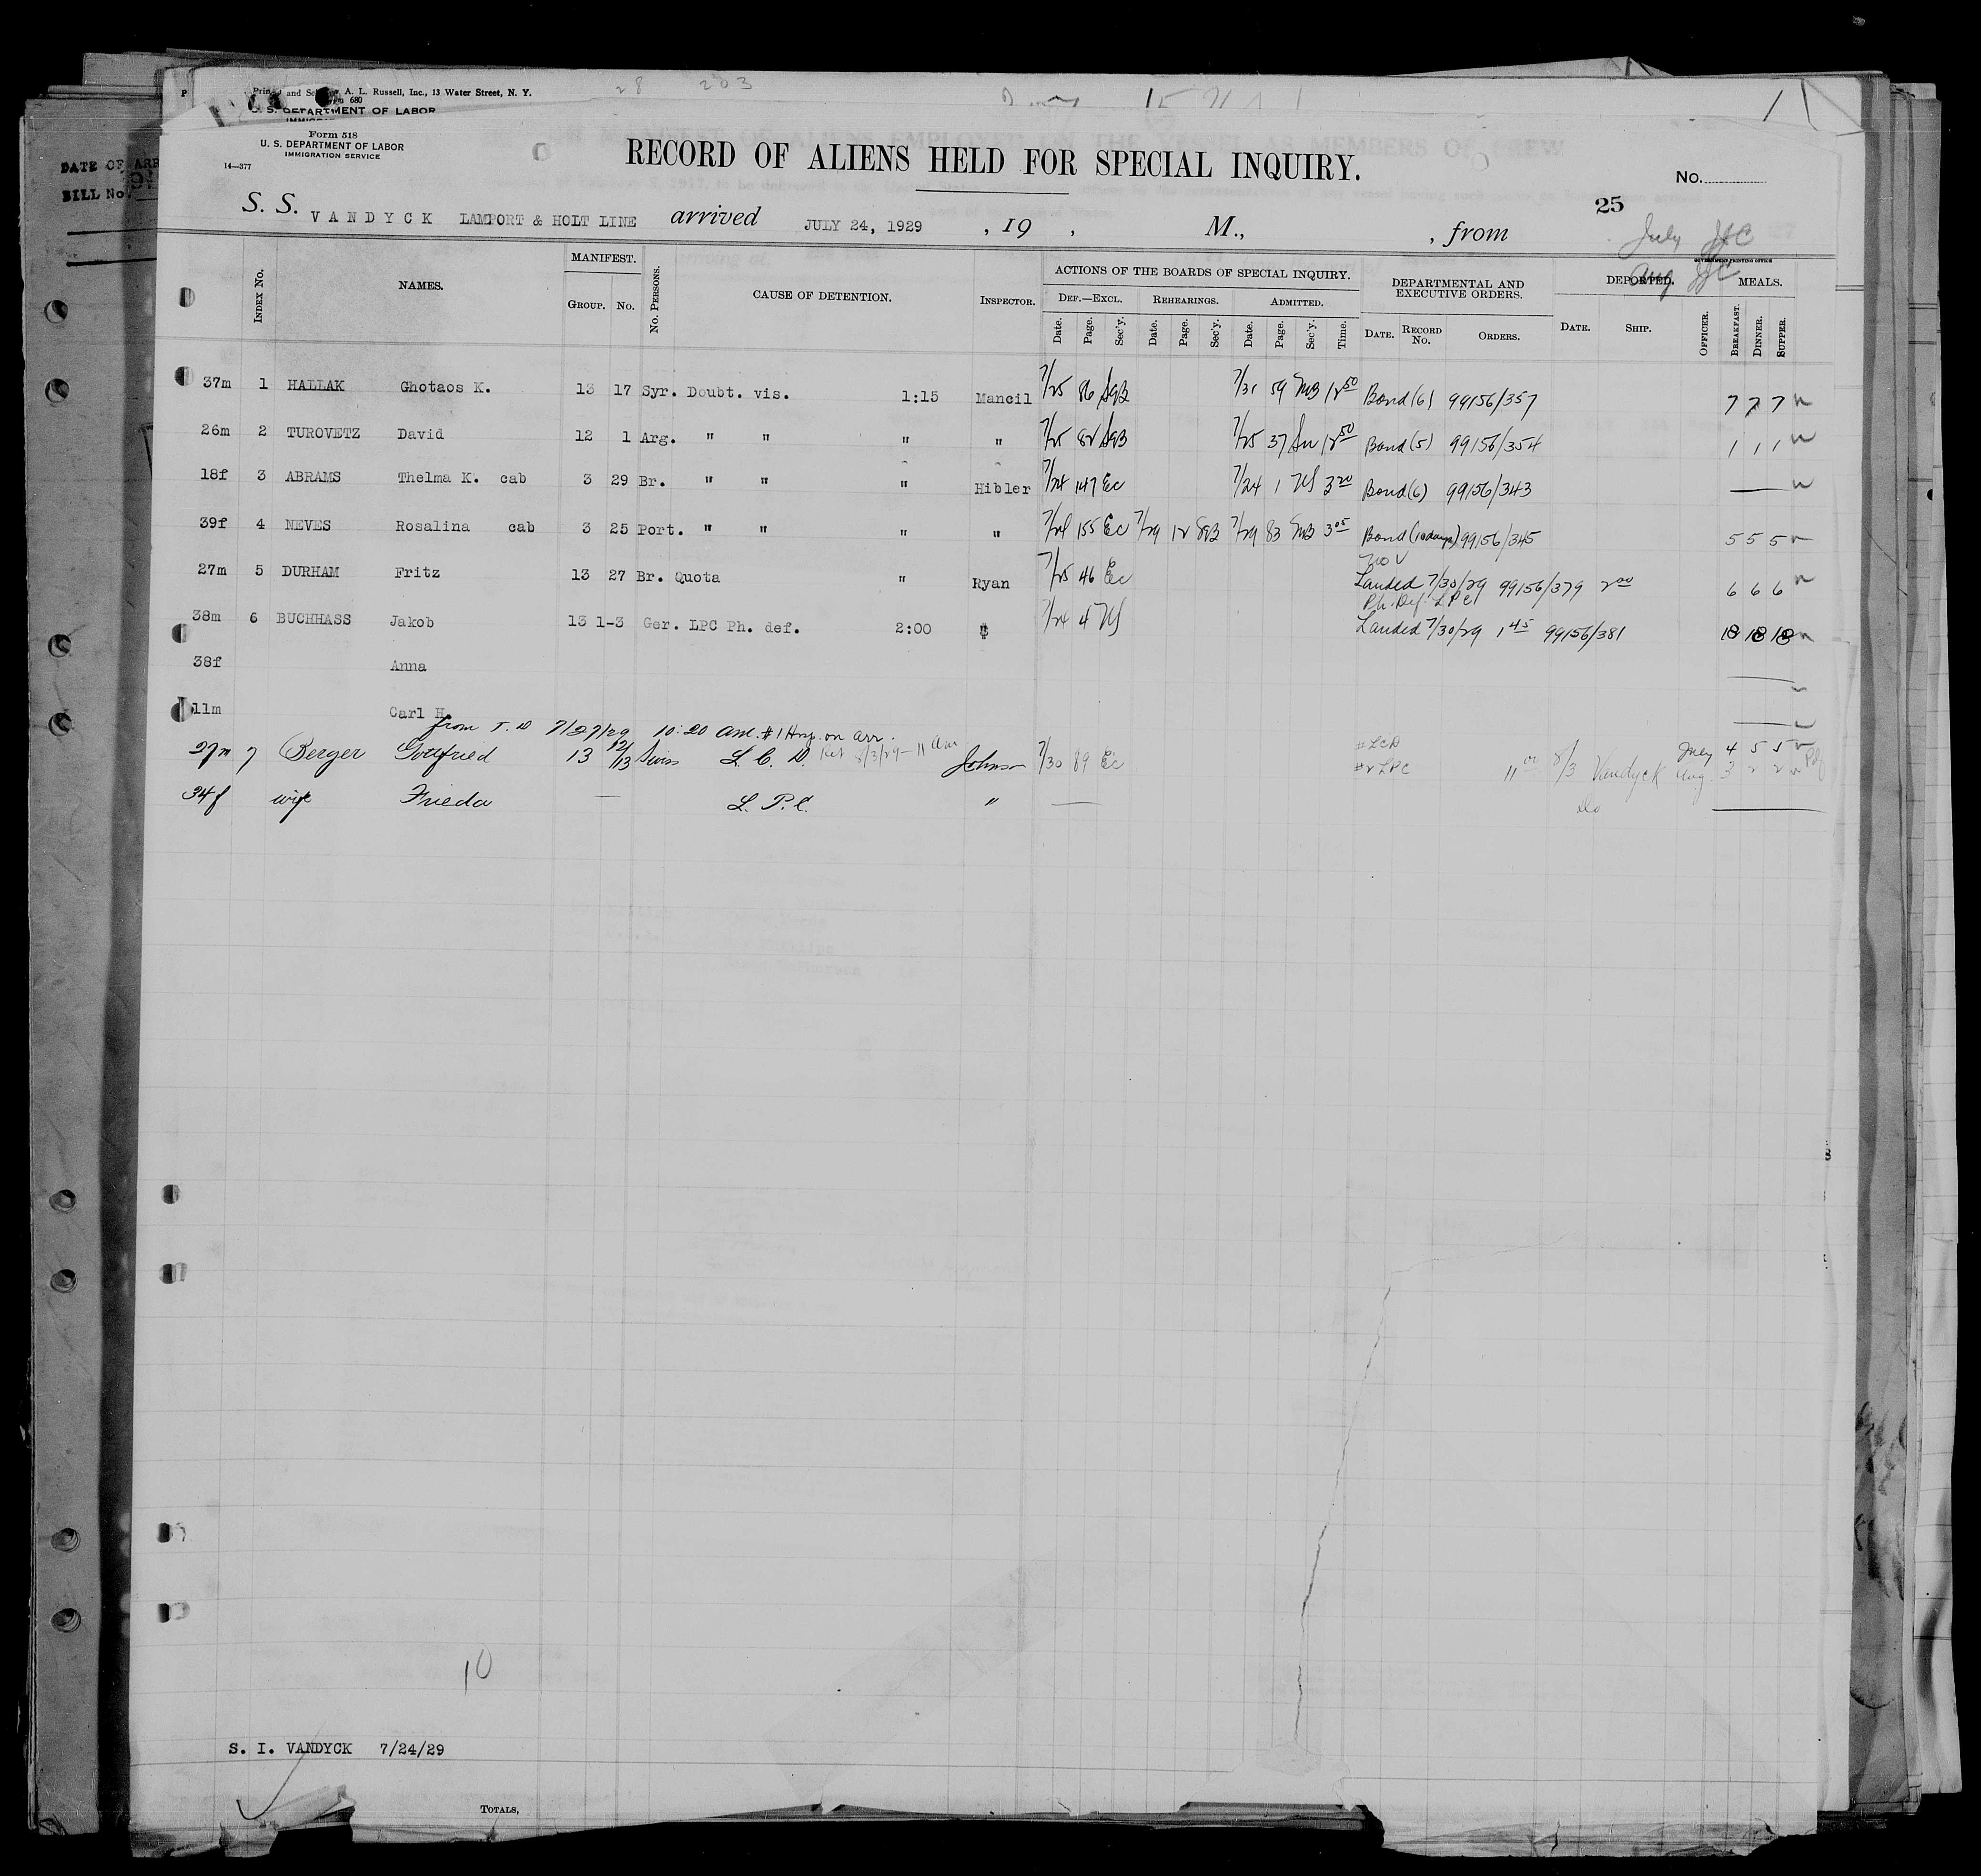 Form 518
U. S. DEPARTMENT OF LABOR
IMMIGRATION SERVICE
14—377
and A. L. Russell, Inc., 13 Water Street, N. Y.
680
U. S. DEPARTMENT OF LABOR
28 203
DATE OF ARR
BILL No.
RECORD OF ALIENS HELD FOR SPECIAL INQUIRY.
No.
25
S. S. VANDYCK LAMPORT & HOLT LINE arrived JULY 24, 1929 , 19 , M., , from
July JJC
Aug JJC
GOVERNMENT PRINTING OFFICE
Index No. NAMES. MANIFEST. Group. No. No. Persons. CAUSE OF DETENTION. Inspector. ACTIONS OF THE BOARDS OF SPECIAL INQUIRY. DEPARTMENTAL AND EXECUTIVE ORDERS. DEPORTED. MEALS.
Def.—Excl. Rehearings. Admitted.
Date. Page. Sec'y. Date. Page. Sec'y. Date. Page. Sec'y. Time. Date. Record No. Orders. Date. Ship. Officer. Breakfast. Dinner. Supper.
37m 1 HALLAK Ghotaos K. 13 17 Syr. Doubt. vis. 1:15 Mancil 7/25 86 SgB 7/31 59 SMB 12 50 Bond (6) 99156/357 7 7 7
26m 2 TUROVETZ David 12 1 Arg. " " " " 7/25 82 SgB 7/25 37 12 50 Bond (5) 99156/354 1 1 1
18f 3 ABRAMS Thelma K. cab 3 29 Br. " " " Hibler 7/24 147 Ec 7/24 1 3 20 Bond (6) 99156/343 —
39f 4 NEVES Rosalina cab 3 25 Port. " " " " 7/24 155 Ec 7/29 12 SgB 7/29 83 SMB 3 05 Bond (10 days) 99156/345 5 5 5
27m 5 DURHAM Fritz 13 27 Br. Quota " Ryan 7/25 46 Ec Landed 7/30/29 99156/379 2 00 6 6 6
Ph. Def. LPC
38m 6 BUCHHASS Jakob 13 1-3 Ger. LPC Ph. def. 2:00 " 7/24 4 Landed 7/30/29 1 45 99156/381 18 18 18
38f Anna
11m Carl H.
from T. D 7/27/29 10:20 am. #1 Hosp. on arr.
27m 7 Berger Gottfried 13 12/13 Swiss L. C. D. Ret 8/3/29—11 am Johnson 7/30 89 Ec #1 LCD July 4 5 5
#2 LPC 11 00 8/3 Vandyck Aug. 3 2 2
34f wife Frieda — L. P. C. " — do
10
S. I. VANDYCK 7/24/29
Totals,